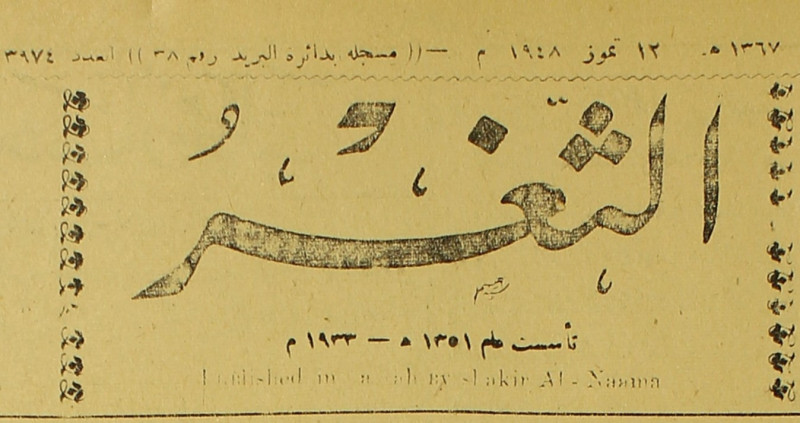 ١٣٦٧ ه. ١٢ تموز ١٩٤٨ م —(( مسجله بدائرة البريد رقم ٣٨ )) العدد ٣٩٧٤
الثَّغْرُ
تأسست عام ١٣٥١ ه — ١٩٣٣ م
Published in by Shakir Al-Naama